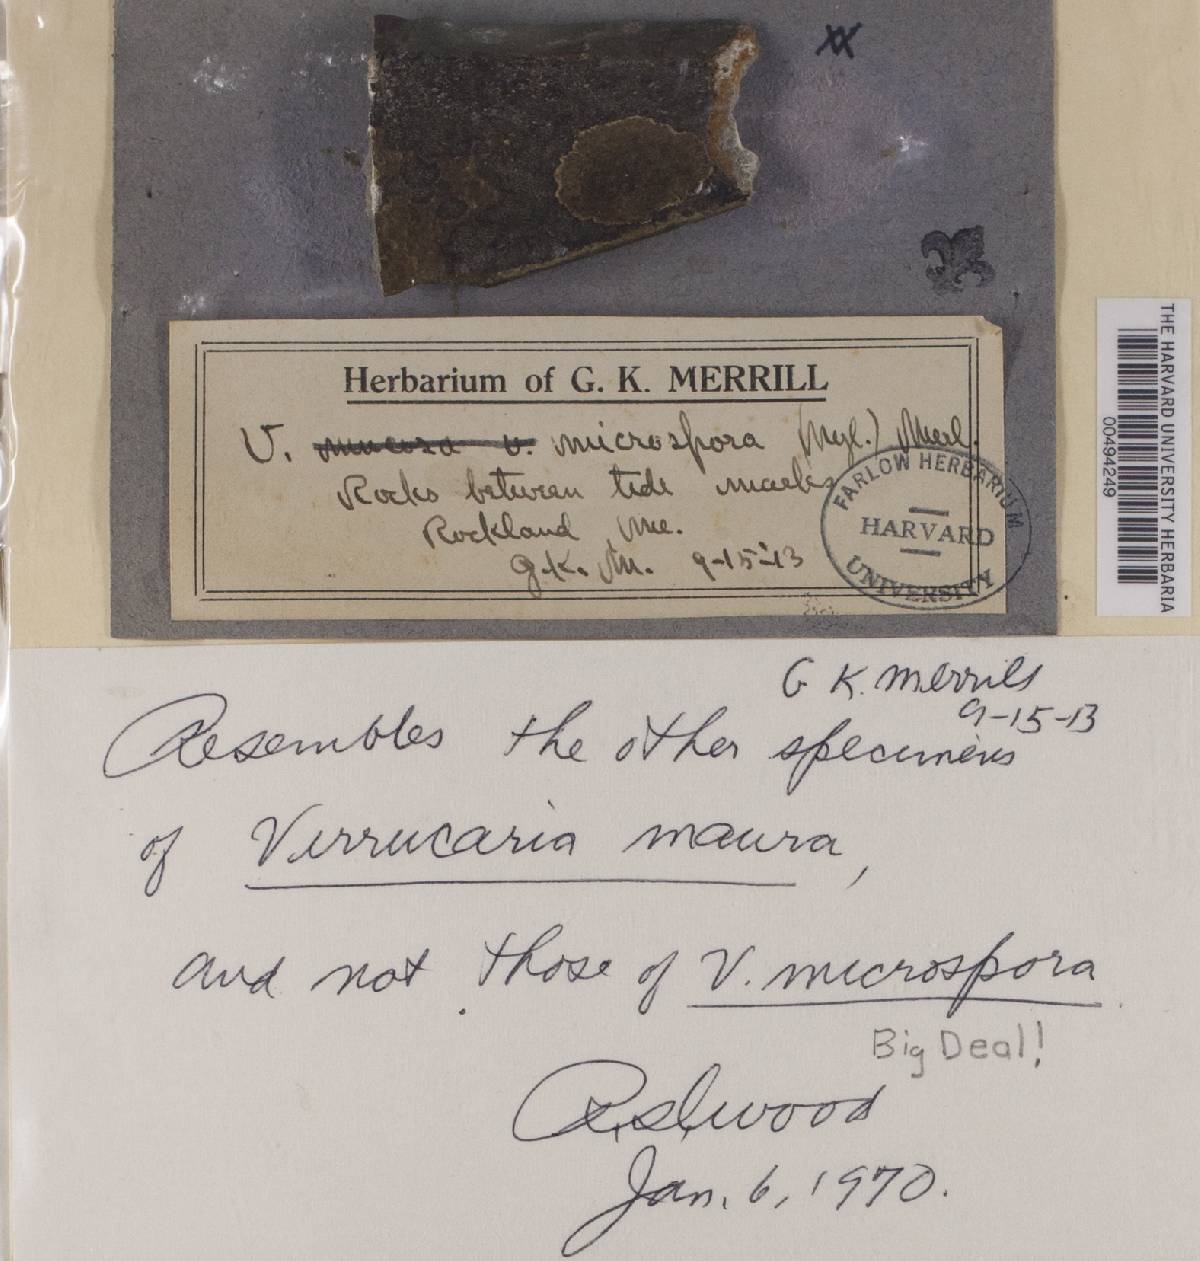 XX
Herbarium of G. K. MERRILL
V. mucosa v. microspora (Nyl.) Merl.
Rocks between tide marks
Rockland, Me.
G.K.M. 9-15-13
FARLOW HERBARIUM
HARVARD
UNIVERSITY
THE HARVARD UNIVERSITY HERBARIA
00494249
G K. Merrill
9-15-13
Resembles the other specimens
of Verrucaria maura,
and not those of V. microspora
Big Deal!
Jan. 6, 1970.